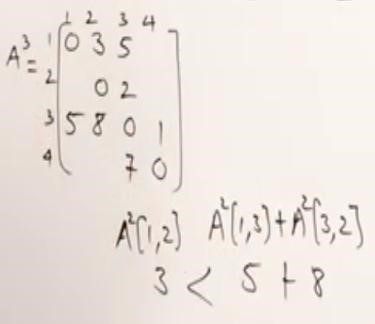 1 2 3 4
A³= 1 0 3 5
2 0 2
3 5 8 0 1
4 7 0
A²[1,2] A²[1,3]+A²[3,2]
3 < 5 + 8